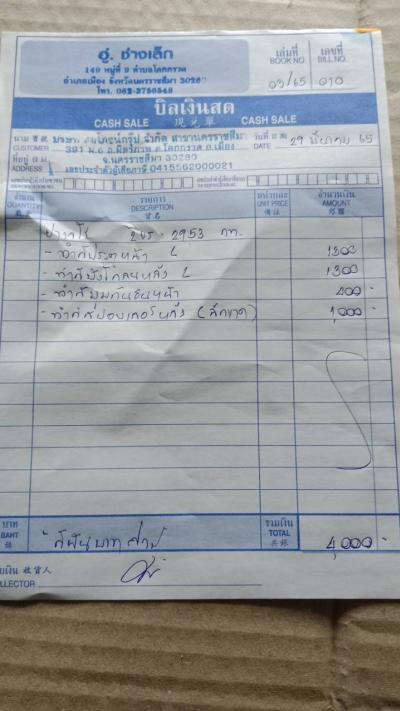 อู่. ช่างเล็ก
149 หมู่ที่ 9 ตำบลโคกกรวด
อำเภอเมือง จังหวัดนครราชสีมา 30280
โทร. 062-3756548
เล่มที่ BOOK NO. 03/65
เลขที่ BILL NO. 010
บิลเงินสด
CASH SALE 現兑單 CASH SALE
นาม CUSTOMER จำกัด สาขานครราชสีมา
วันที่ DATE 29 มีนาคม 65
391 ม.6 ถ.มิตรภาพ ต.โคกกรวด อ.เมือง
ที่อยู่ ADDRESS จ.นครราชสีมา 30280
เลขประจำตัวผู้เสียภาษี 0415562000021
จำนวน QUANTITY รายการ DESCRIPTION หน่วยละ UNIT PRICE จำนวนเงิน AMOUNT
2953 กท.
- ทำสีประตูหน้า L 1300
- ทำสีบังโคลนหลัง L 1300
- ทำสีมุมกันชนหน้า 400 -
- ทำสีสปอยเลอร์หลัง 1,000 -
บาท BAHT สี่พันบาทถ้วน
รวมเงิน TOTAL 共銀 4,000 -
收貨人
COLLECTOR